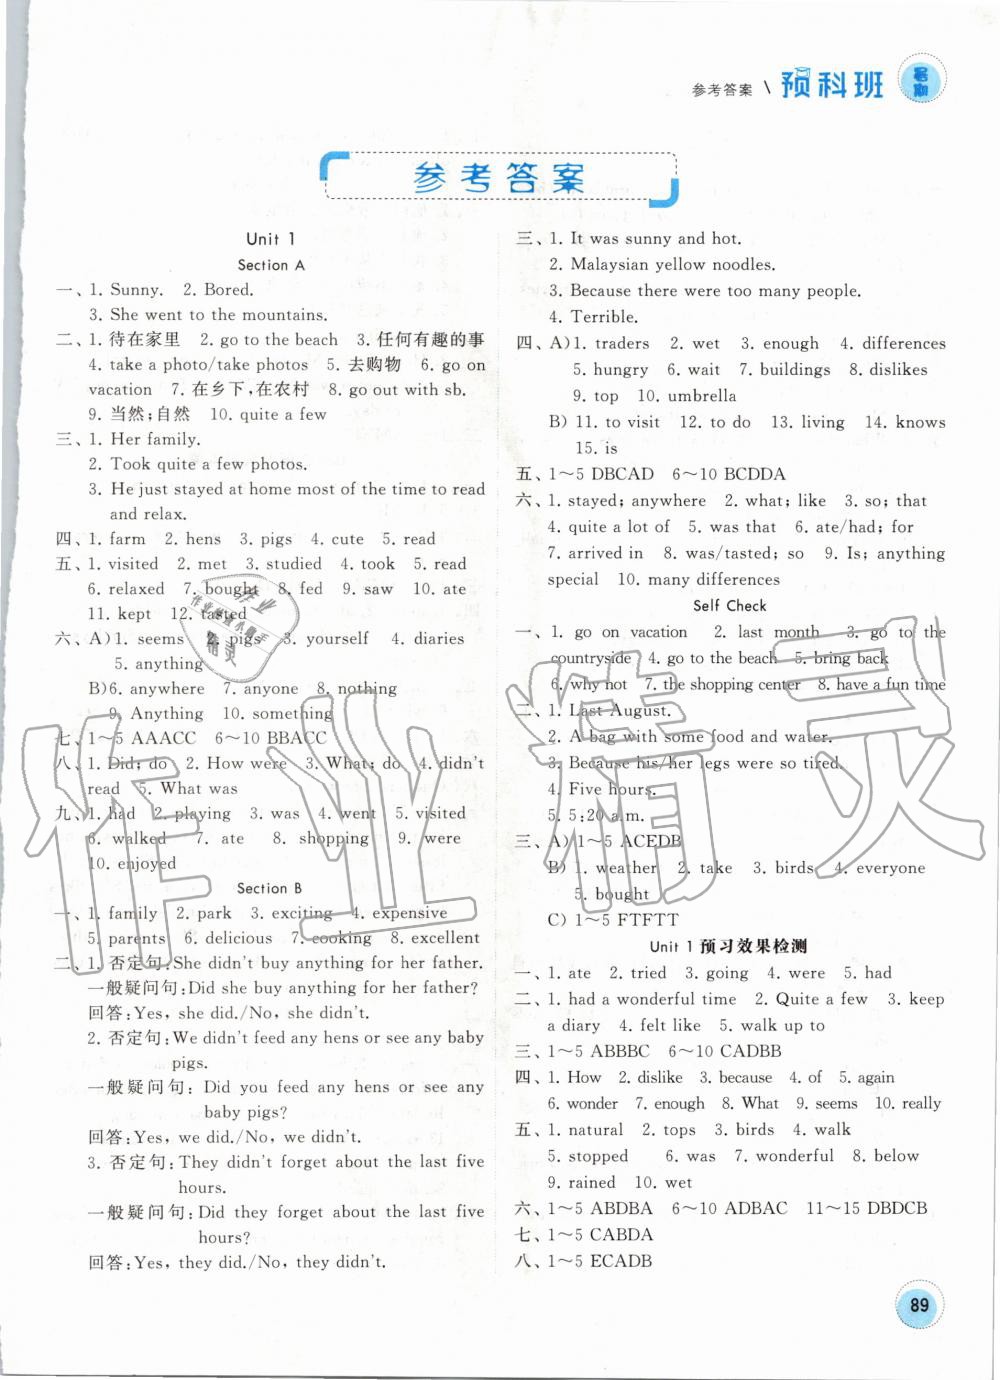 参考答案 \ 预科班 暑期
参考答案
Unit 1
Section A
一、1. Sunny. 2. Bored.
3. She went to the mountains.
二、1. 待在家里 2. go to the beach 3. 任何有趣的事
4. take a photo/take photos 5. 去购物 6. go on
vacation 7. 在乡下,在农村 8. go out with sb.
9. 当然;自然 10. quite a few
三、1. Her family.
2. Took quite a few photos.
3. He just stayed at home most of the time to read
and relax.
四、1. farm 2. hens 3. pigs 4. cute 5. read
五、1. visited 2. met 3. studied 4. took 5. read
6. relaxed 7. bought 8. fed 9. saw 10. ate
11. kept 12. tasted
六、A)1. seems 2. pigs 3. yourself 4. diaries
5. anything
B)6. anywhere 7. anyone 8. nothing
9. Anything 10. something
七、1～5 AAACC 6～10 BBACC
八、1. Did; do 2. How were 3. What; do 4. didn't
read 5. What was
九、1. had 2. playing 3. was 4. went 5. visited
6. walked 7. ate 8. shopping 9. were
10. enjoyed
Section B
一、1. family 2. park 3. exciting 4. expensive
5. parents 6. delicious 7. cooking 8. excellent
二、1. 否定句:She didn't buy anything for her father.
一般疑问句:Did she buy anything for her father?
回答:Yes, she did./No, she didn't.
2. 否定句:We didn't feed any hens or see any baby
pigs.
一般疑问句: Did you feed any hens or see any
baby pigs?
回答:Yes, we did./No, we didn't.
3. 否定句:They didn't forget about the last five
hours.
一般疑问句:Did they forget about the last five
hours?
回答:Yes, they did./No, they didn't.
三、1. It was sunny and hot.
2. Malaysian yellow noodles.
3. Because there were too many people.
4. Terrible.
四、A)1. traders 2. wet 3. enough 4. differences
5. hungry 6. wait 7. buildings 8. dislikes
9. top 10. umbrella
B) 11. to visit 12. to do 13. living 14. knows
15. is
五、1～5 DBCAD 6～10 BCDDA
六、1. stayed; anywhere 2. what; like 3. so; that
4. quite a lot of 5. was that 6. ate/had; for
7. arrived in 8. was/tasted; so 9. Is; anything
special 10. many differences
Self Check
一、1. go on vacation 2. last month 3. go to the
countryside 4. go to the beach 5. bring back
6. why not 7. the shopping center 8. have a fun time
二、1. Last August.
2. A bag with some food and water.
3. Because his/her legs were so tired.
4. Five hours.
5. 5:20 a.m.
三、A)1～5 ACEDB
B) 1. weather 2. take 3. birds 4. everyone
5. bought
C) 1～5 FTFTT
Unit 1 预习效果检测
一、1. ate 2. tried 3. going 4. were 5. had
二、1. had a wonderful time 2. Quite a few 3. keep
a diary 4. felt like 5. walk up to
三、1～5 ABBBC 6～10 CADBB
四、1. How 2. dislike 3. because 4. of 5. again
6. wonder 7. enough 8. What 9. seems 10. really
五、1. natural 2. tops 3. birds 4. walk
5. stopped 6. was 7. wonderful 8. below
9. rained 10. wet
六、1～5 ABDBA 6～10 ADBAC 11～15 DBDCB
七、1～5 CABDA
八、1～5 ECADB
89
作业精灵